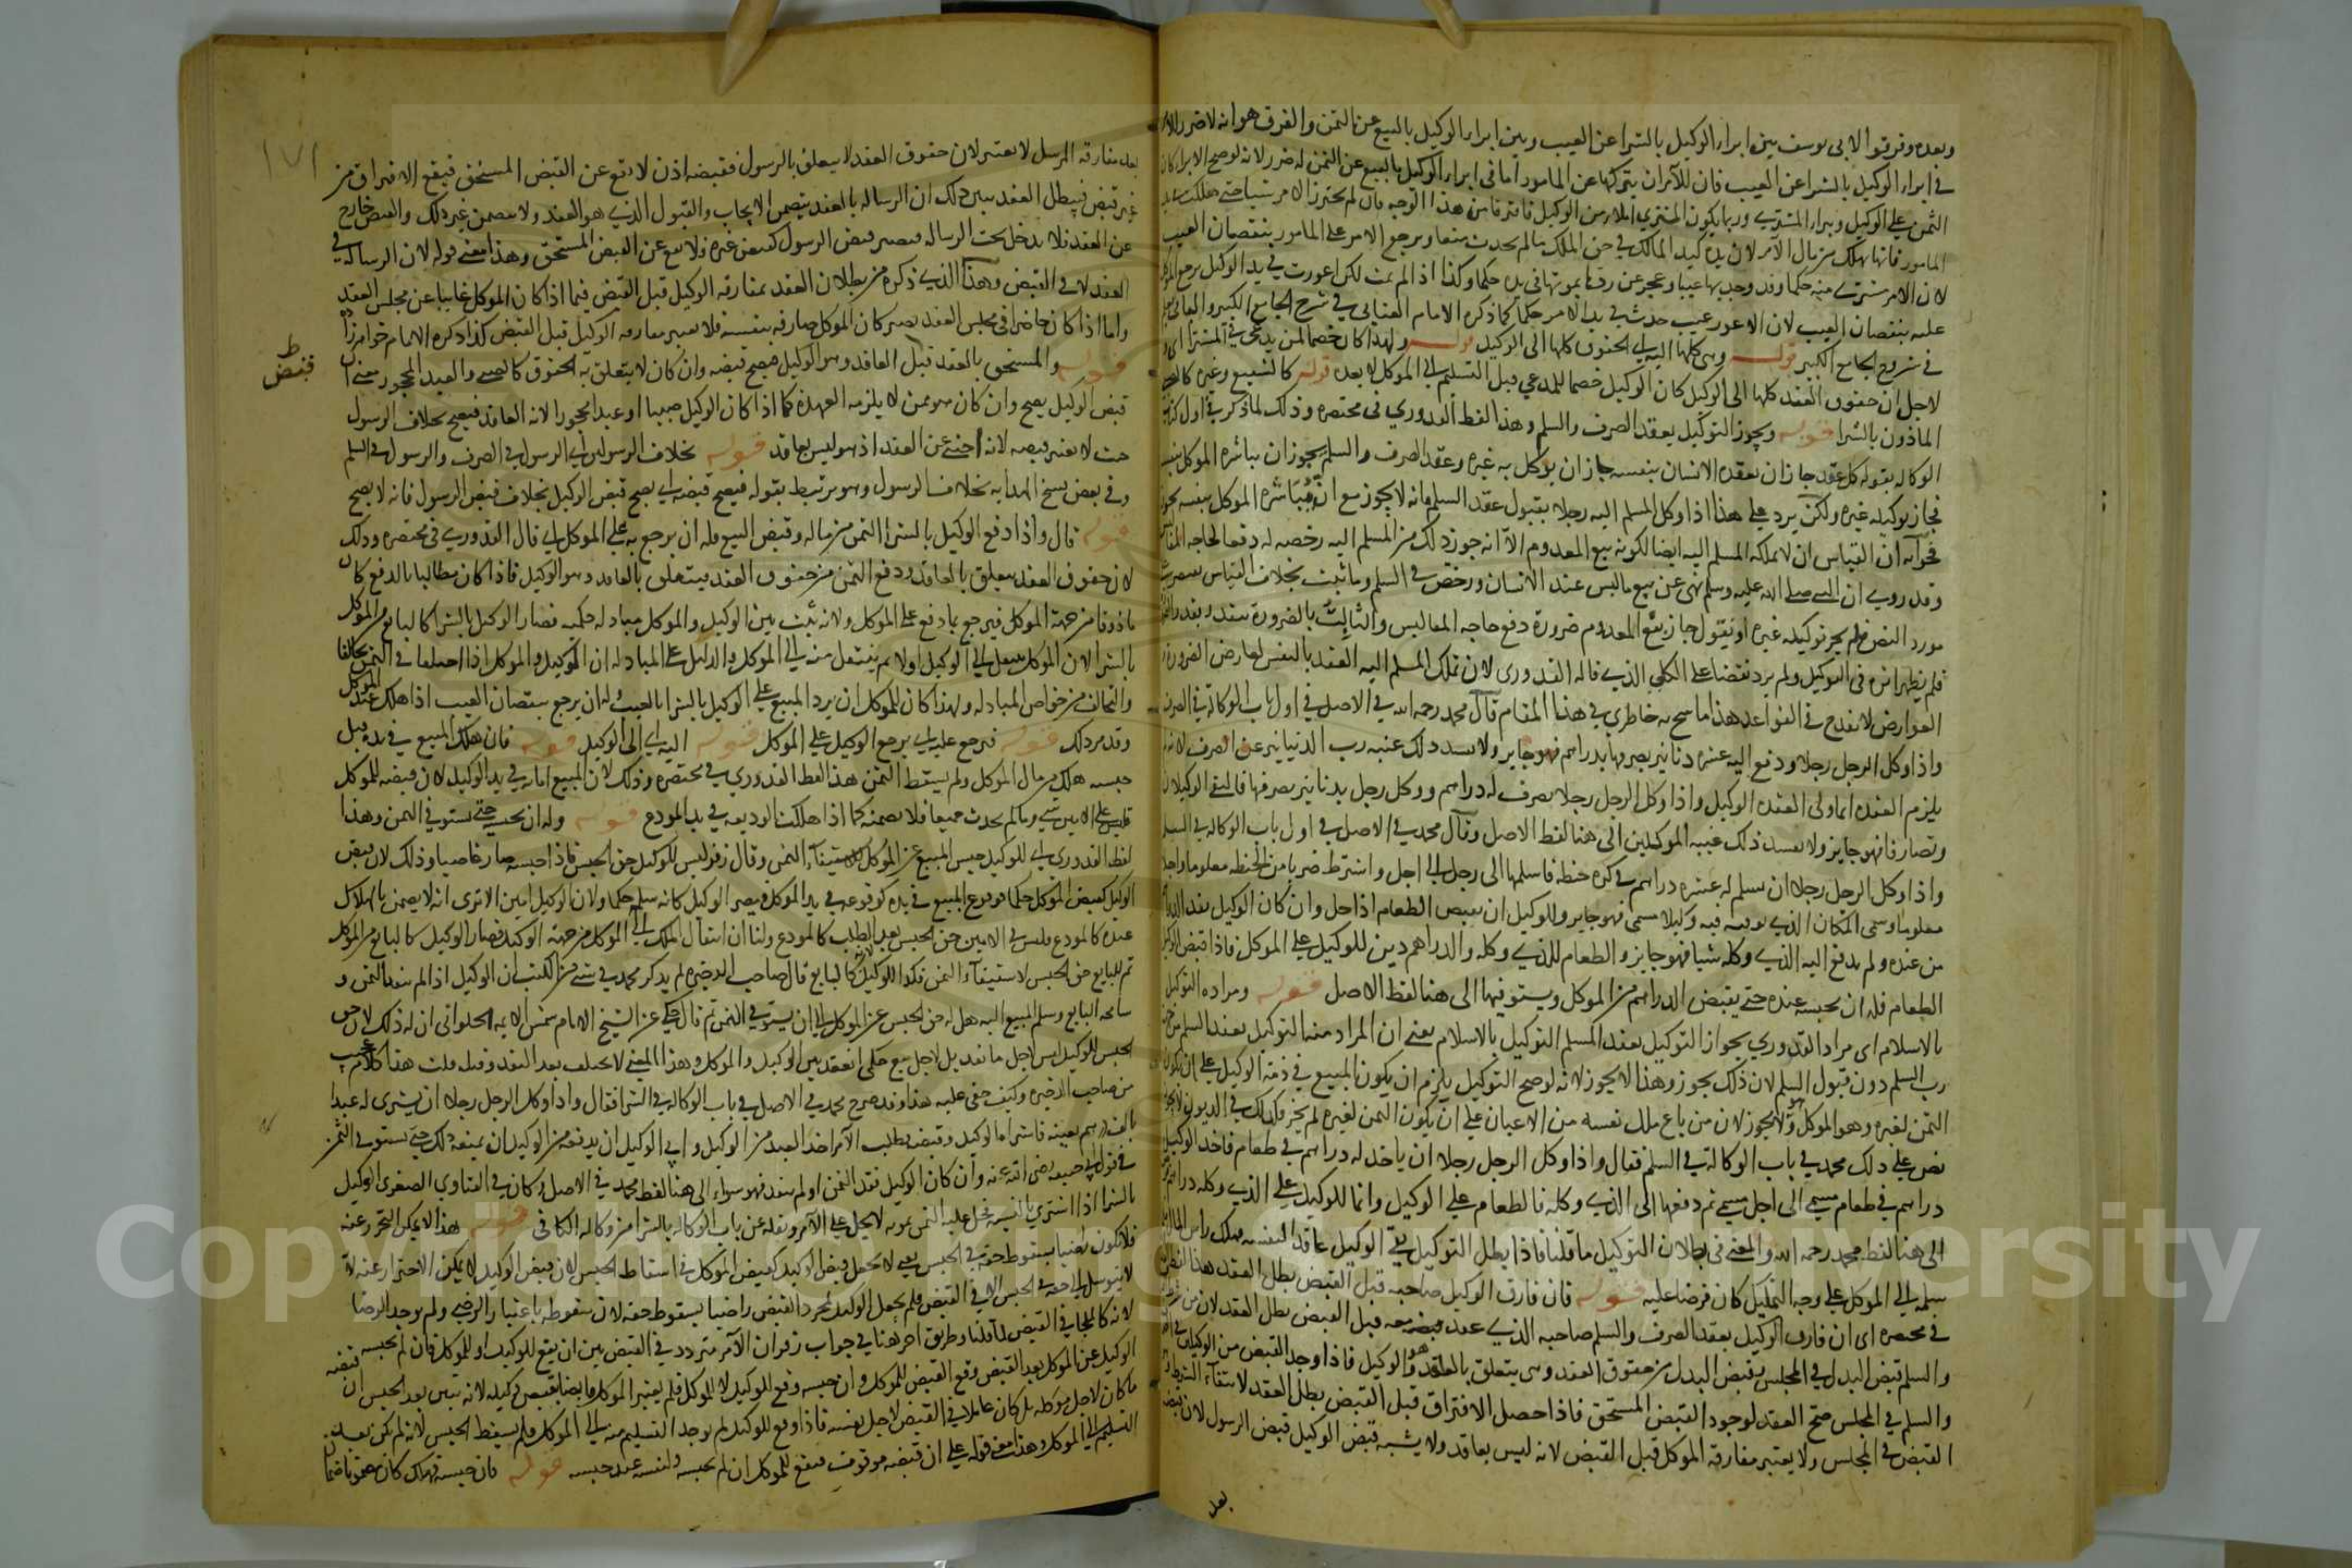 وبعده وفرقوا لابي يوسف بين ابراء الوكيل بالشرا عن العيب وبين ابراء الوكيل بالبيع عن الثمن والفرق هو انه لا ضرر
في ابراء الوكيل بالشرا عن العيب فان للآمر ان يتركها عن المامور اما في ابراء الوكيل بالبيع عن الثمن له ضرر لانه لو صح الابراء كان
الثمن على الوكيل ويبرا المشتري وربما يكون المشتري املا من الوكيل فافترقا من هذا الوجه فان لم يختر الامر شيا حتى هلكت عند
المامور فانها تهلك من مال الآمر لان يده كيد المالك في حق الملك ما لم يحدث منعا ويرجع الامر على المامور بنقصان العيب
لان الامر مشتري منه حكما وقد وجد بها عيبا وعجز عن ردها بموتها في يده حكما وكذا اذا لم تمت لكن اعورت في يد الوكيل يرجع
عليه بنقصان العيب لان الاعور عيب حدث في يد الامر حكما كما ذكره الامام العتابي في شرح الجامع الكبير
في شروح الجامع الكبير قوله وهي كلها اليه اي الحقوق كلها الى الوكيل قوله ولهذا كان خصما لمن يدعي في المشترا اي
لاجل ان حقوق العقد كلها الى الوكيل كان الوكيل خصما للمدعي قبل التسليم الى الموكل لا بعده قوله كالشفيع وغيره
الماذون بالشرا قوله ويجوز التوكيل بعقد الصرف والسلم وهذا لفظ القدوري في مختصره وذلك لما ذكر في اول كتاب
الوكالة بقوله كل عقد جاز ان يعقده الانسان بنفسه جاز ان يوكل به غيره وعقد الصرف والسلم يجوز ان يباشره الموكل بنفسه
فجاز توكيله غيره ولكن يرد على هذا اذا وكل المسلم اليه رجلا بقبول عقد السلم فانه لا يجوز مع ان مباشرة الموكل بنفسه يجوز
فجوابه ان القياس ان لا يملكه المسلم اليه ايضا لكونه بيع المعدوم الا انه جوز ذلك من المسلم اليه رخصه له دفعا لحاجة
وقد روي ان النبي صلى الله عليه وسلم نهى عن بيع ما ليس عند الانسان ورخص في السلم وما ثبت بخلاف القياس يقتصر
مورد النص فلم يجز توكيله غيره او نقول جاز بيع المعدوم ضرورة دفع حاجة المفاليس والثابت بالضرورة يتقدر بقدر
فلم يظهر اثره في التوكيل ولم يرد نقضا على الكلي الذي قاله القدوري لان تملك المسلم اليه العقد بالنفس لعارض الضرورة
العوارض لا تقدح في القواعد هذا ما سنح به خاطري في هذا المقام قال محمد رحمه الله في الاصل في اول باب الوكالة في الصرف
واذا وكل الرجل رجلا ودفع اليه عشرة دنانير يصرفها بدراهم فهو جايز ولا يفسد ذلك غيبة رب الدنانير عن الصرف
يلزم العقدة انما ولي العقدة الوكيل واذا وكل الرجل رجلا يصرف له دراهم ووكل رجل بدنانير يصرفها فالتقى الوكيلان
وتصارفا فهو جايز ولا يفسد ذلك غيبة الموكلين الى هنا لفظ الاصل وقال محمد في الاصل في اول باب الوكالة في السلم
واذا وكل الرجل رجلا ان يسلم له عشرة دراهم في كر حنطة فاسلمها الى رجل الى اجل واشترط ضربا من الحنطة معلوما
معلوما وسمى المكان الذي يوفيه فيه وكيلا مسمى فهو جايز وللوكيل ان يقبض الطعام اذا حل وان كان الوكيل نقد
من عنده ولم يدفع اليه الذي وكله شيا فهو جايز والطعام للذي وكله والدراهم دين للوكيل على الموكل فاذا قبض
الطعام فله ان يحبسه عنده حتى يقبض الدراهم من الموكل ويستوفيها الى هنا لفظ الاصل قوله ومراده التوكيل
بالاسلام اي مراد القدوري بجواز التوكيل بعقد السلم التوكيل بالاسلام يعني ان المراد منه التوكيل بعقد السلم
رب السلم دون قبول السلم لان ذلك يجوز وهذا لا يجوز لانه لو صح التوكيل يلزم ان يكون المبيع في ذمة الوكيل على ان يكون
الثمن لغيره وهو الموكل ولا يجوز لان من باع ملك نفسه من الاعيان على ان يكون الثمن لغيره لم يجز وكذلك في الديون
نص على ذلك محمد في باب الوكالة في السلم فقال واذا وكل الرجل رجلا ان ياخذ له دراهم في طعام فاخذ الوكيل
دراهم في طعام مسمى الى اجل مسمى ثم دفعها الى الذي وكله فالطعام على الوكيل وانما للوكيل على الذي وكله دراهم
الى هنا لفظ محمد رحمه الله والمعنى في بطلان التوكيل ما قلنا فاذا بطل التوكيل بقي الوكيل عاقدا لنفسه فملك راس المال
سلمه الى الموكل على وجه التمليك كان قرضا عليه قوله فان فارق الوكيل صاحبه قبل القبض بطل العقد هذا
في مختصره اي ان فارق الوكيل بعقد الصرف والسلم صاحبه الذي عقد معه قبل القبض بطل العقد لان
والسلم قبض البدل في المجلس وقبض البدل من حقوق العقد وهي يتعلق بالعاقد وهو الوكيل فاذا وجد القبض من الوكيل
والسلم في المجلس صح العقد لوجود القبض المستحق فاذا حصل الافتراق قبل القبض بطل العقد لانتفاء الشرط
القبض في المجلس ولا يعتبر مفارقة الموكل قبل القبض لانه ليس بعاقد ولا يشبه قبض الوكيل قبض الرسول لان
بعد
١٧١
بعد مفارقة المرسل لا يعتبر لان حقوق العقد لا يتعلق بالرسول فقبضه اذن لا يقع عن القبض المستحق فيقع الافتراق من
غير قبض فيبطل العقد يبين ذلك ان الرسالة بالعقد يتضمن الايجاب والقبول الذي هو العقد ولا يتضمن غير ذلك والقبض خارج
عن العقد فلا يدخل تحت الرسالة فيصير قبض الرسول كقبض غيره فلا يقع عن القبض المستحق وهذا معنى قوله لان الرسالة في
العقد لا في القبض وهذا الذي ذكره من بطلان العقد بمفارقة الوكيل قبل القبض فيما اذا كان الموكل غايبا عن مجلس العقد
واما اذا كان حاضرا في مجلس العقد يصير كان الموكل صارفه بنفسه فلا تعتبر مفارقة الوكيل قبل القبض كذا ذكره الامام خواهرزاده
قوله والمستحق بالعقد قبض العاقد وهو الوكيل فيصح قبضه وان كان لا يتعلق به الحقوق كالصبي والعبد المحجور يعني ان
قبض
قبض الوكيل يصح وان كان هو ممن لا يلزمه العهدة كما اذا كان الوكيل صبيا او عبدا محجورا لانه العاقد فيصح بخلاف الرسول
حيث لا يعتبر قبضه لانه اجنبي عن العقد اذ هو ليس بعاقد قوله بخلاف الرسولين اي الرسول في الصرف والرسول في السلم
وفي بعض نسخ الهداية بخلاف الرسول وهو مرتبط بقوله فيصح قبضه اي يصح قبض الوكيل بخلاف قبض الرسول فانه لا يصح
قوله قال واذا دفع الوكيل بالشرا الثمن من ماله وقبض المبيع فله ان يرجع به على الموكل اي قال القدوري في مختصره وذلك
لان حقوق العقد يتعلق بالعاقد ودفع الثمن من حقوق العقد فيتعلق بالعاقد وهو الوكيل فاذا كان مطالبا بالدفع كان
ماذونا من جهة الموكل فيرجع بما دفع على الموكل ولانه ثبت بين الوكيل والموكل مبادلة حكمية فصار الوكيل بالشرا كالبايع من الموكل
بالشرا لان الموكل ينتقل الى الوكيل اولا ثم ينتقل منه الى الموكل والدليل على المبادلة ان الوكيل والموكل اذا اختلفا في الثمن تحالفا
والتحالف من خواص المبادلة ولهذا كان للموكل ان يرد المبيع على الوكيل بالشرا بالعيب وله ان يرجع بنقصان العيب اذا هلك عند الموكل
وقد مر ذلك قوله فيرجع عليه اي يرجع الوكيل على الموكل قوله اليه اي الى الوكيل قوله فان هلك المبيع في يده قبل
حبسه هلك من مال الموكل ولم يسقط الثمن هذا لفظ القدوري في مختصره وذلك لان المبيع امانة في يد الوكيل لان قبضه للموكل
على الامين شي وما لم يحدث منعا فلا يضمنه كما اذا هلكت الوديعة في يد المودع قوله وله ان يحبسه حتى يستوفي الثمن وهذا
لفظ القدوري اي للوكيل حبس المبيع عن الموكل لاستيفاء الثمن وقال زفر ليس للوكيل حق الحبس فاذا حبسه صار غاصبا وذلك لان قبض
الوكيل كقبض الموكل حكما فوقوع المبيع في يده كوقوعه في يد الموكل فيصير الوكيل كانه سلمه حكما ولان الوكيل امين الا ترى انه لا يضمن بالهلاك
عنده كالمودع فليس للامين حق الحبس بعد الطلب كالمودع ولنا ان انتقال الملك الى الموكل من جهة الوكيل فصار الوكيل كالبايع من الموكل
ثم للبايع حق الحبس لاستيفاء الثمن فكذا للوكيل كالبايع قال صاحب الذخيرة لم يذكر محمد في شي من الكتب ان الوكيل اذا لم ينقد الثمن و
سامحه البايع وسلم المبيع اليه هل له حق الحبس عن الموكل الى ان يستوفي الثمن ثم قال حكي عن الشيخ الامام شمس الايمة الحلواني ان له ذلك لان حق
الحبس للوكيل ليس لاجل ما نقد بل لاجل بيع حكمي انعقد بين الوكيل والموكل وهذا المعنى لا يختلف بعد النقد وقبله قلت هذا كلام عجيب
من صاحب الذخيرة وكيف خفي عليه هذا وقد صرح محمد في الاصل في باب الوكالة في الشرا فقال واذا وكل الرجل رجلا ان يشتري له عبدا
بالف درهم بعينه فاشتراه الوكيل وقبضه فطلب الآمر اخذ العبد من الوكيل وابى الوكيل ان يدفعه فللوكيل ان يمنعه ذلك حتى يستوفي الثمن
في قول ابي حنيفة رضي الله عنه وان كان الوكيل نقد الثمن او لم ينقد فهو سواء الى هنا لفظ محمد في الاصل وكان في الفتاوى الصغرى الوكيل
بالشرا اذا اشترى بالنسية فحل عليه الثمن بموته لا يحل على الآمر ونقله عن باب الوكالة بالشرا من وكالة الكافي قوله هذا لا يمكن التحرز عنه
فلا يكون راضيا بسقوط حقه في الحبس يعني لا يجعل قبض الوكيل كقبض الموكل في اسقاط الحبس لان قبض الوكيل لا يمكن الاحتراز عنه لانه
لا يتوسل الى حقه في الحبس الا في القبض فلم يجعل الوكيل بمجرد القبض راضيا بسقوط حقه لان سقوطه باعتبار الرضى ولم يوجد الرضا
لانه كالملجا في القبض لما قلنا وطريق اخر هنا في جواب زفر ان الآمر متردد في القبض بين ان يقع للوكيل او للموكل فان لم يحبسه
الوكيل عن الموكل بعد القبض وقع القبض للموكل وان حبسه وقع للوكيل لا للموكل فلم يعتبر الموكل قابضا بقبض وكيله لانه تبين بعد الحبس ان قبضه
ما كان لاجل موكله بل كان عاملا في القبض لاجل نفسه فاذا وقع للوكيل لم يوجد التسليم منه الى الموكل فلم يسقط الحبس لانه لم يكن
التسليم الى الموكل وهذا معنى قوله على ان قبضه موقوف فيقع للموكل ان لم يحبسه ولنفسه عند حبسه قوله فان حبسه فهلك كان مضمونا ضمان
Copyright © King Saud University